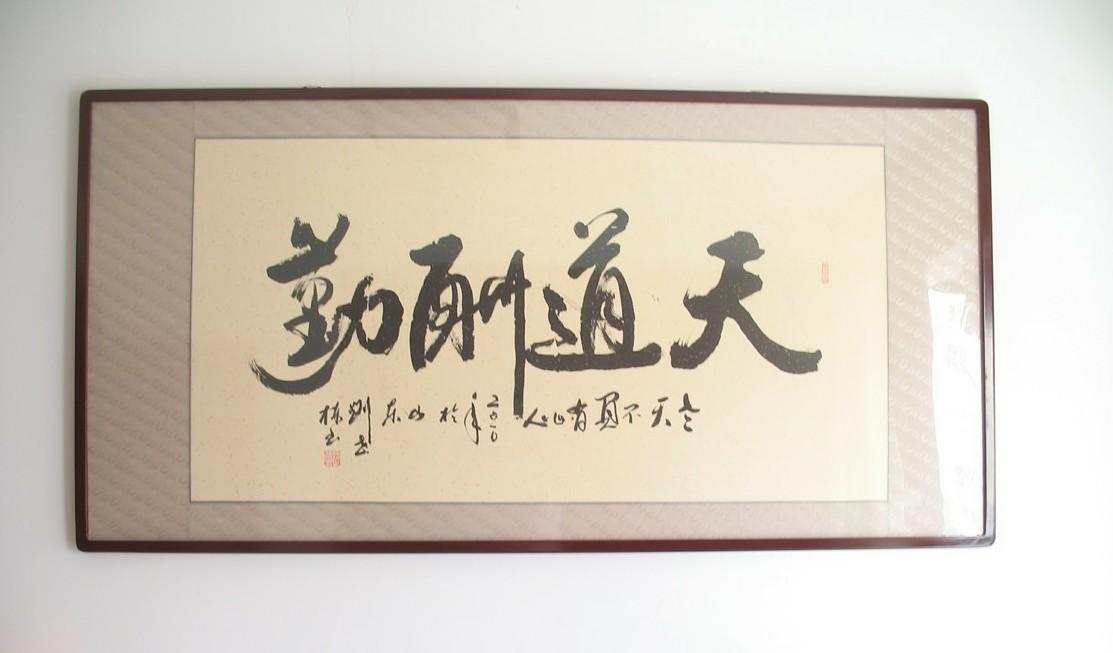 天道酬勤
苍天不負有心人
二〇一〇年於山东
劉志
栋书